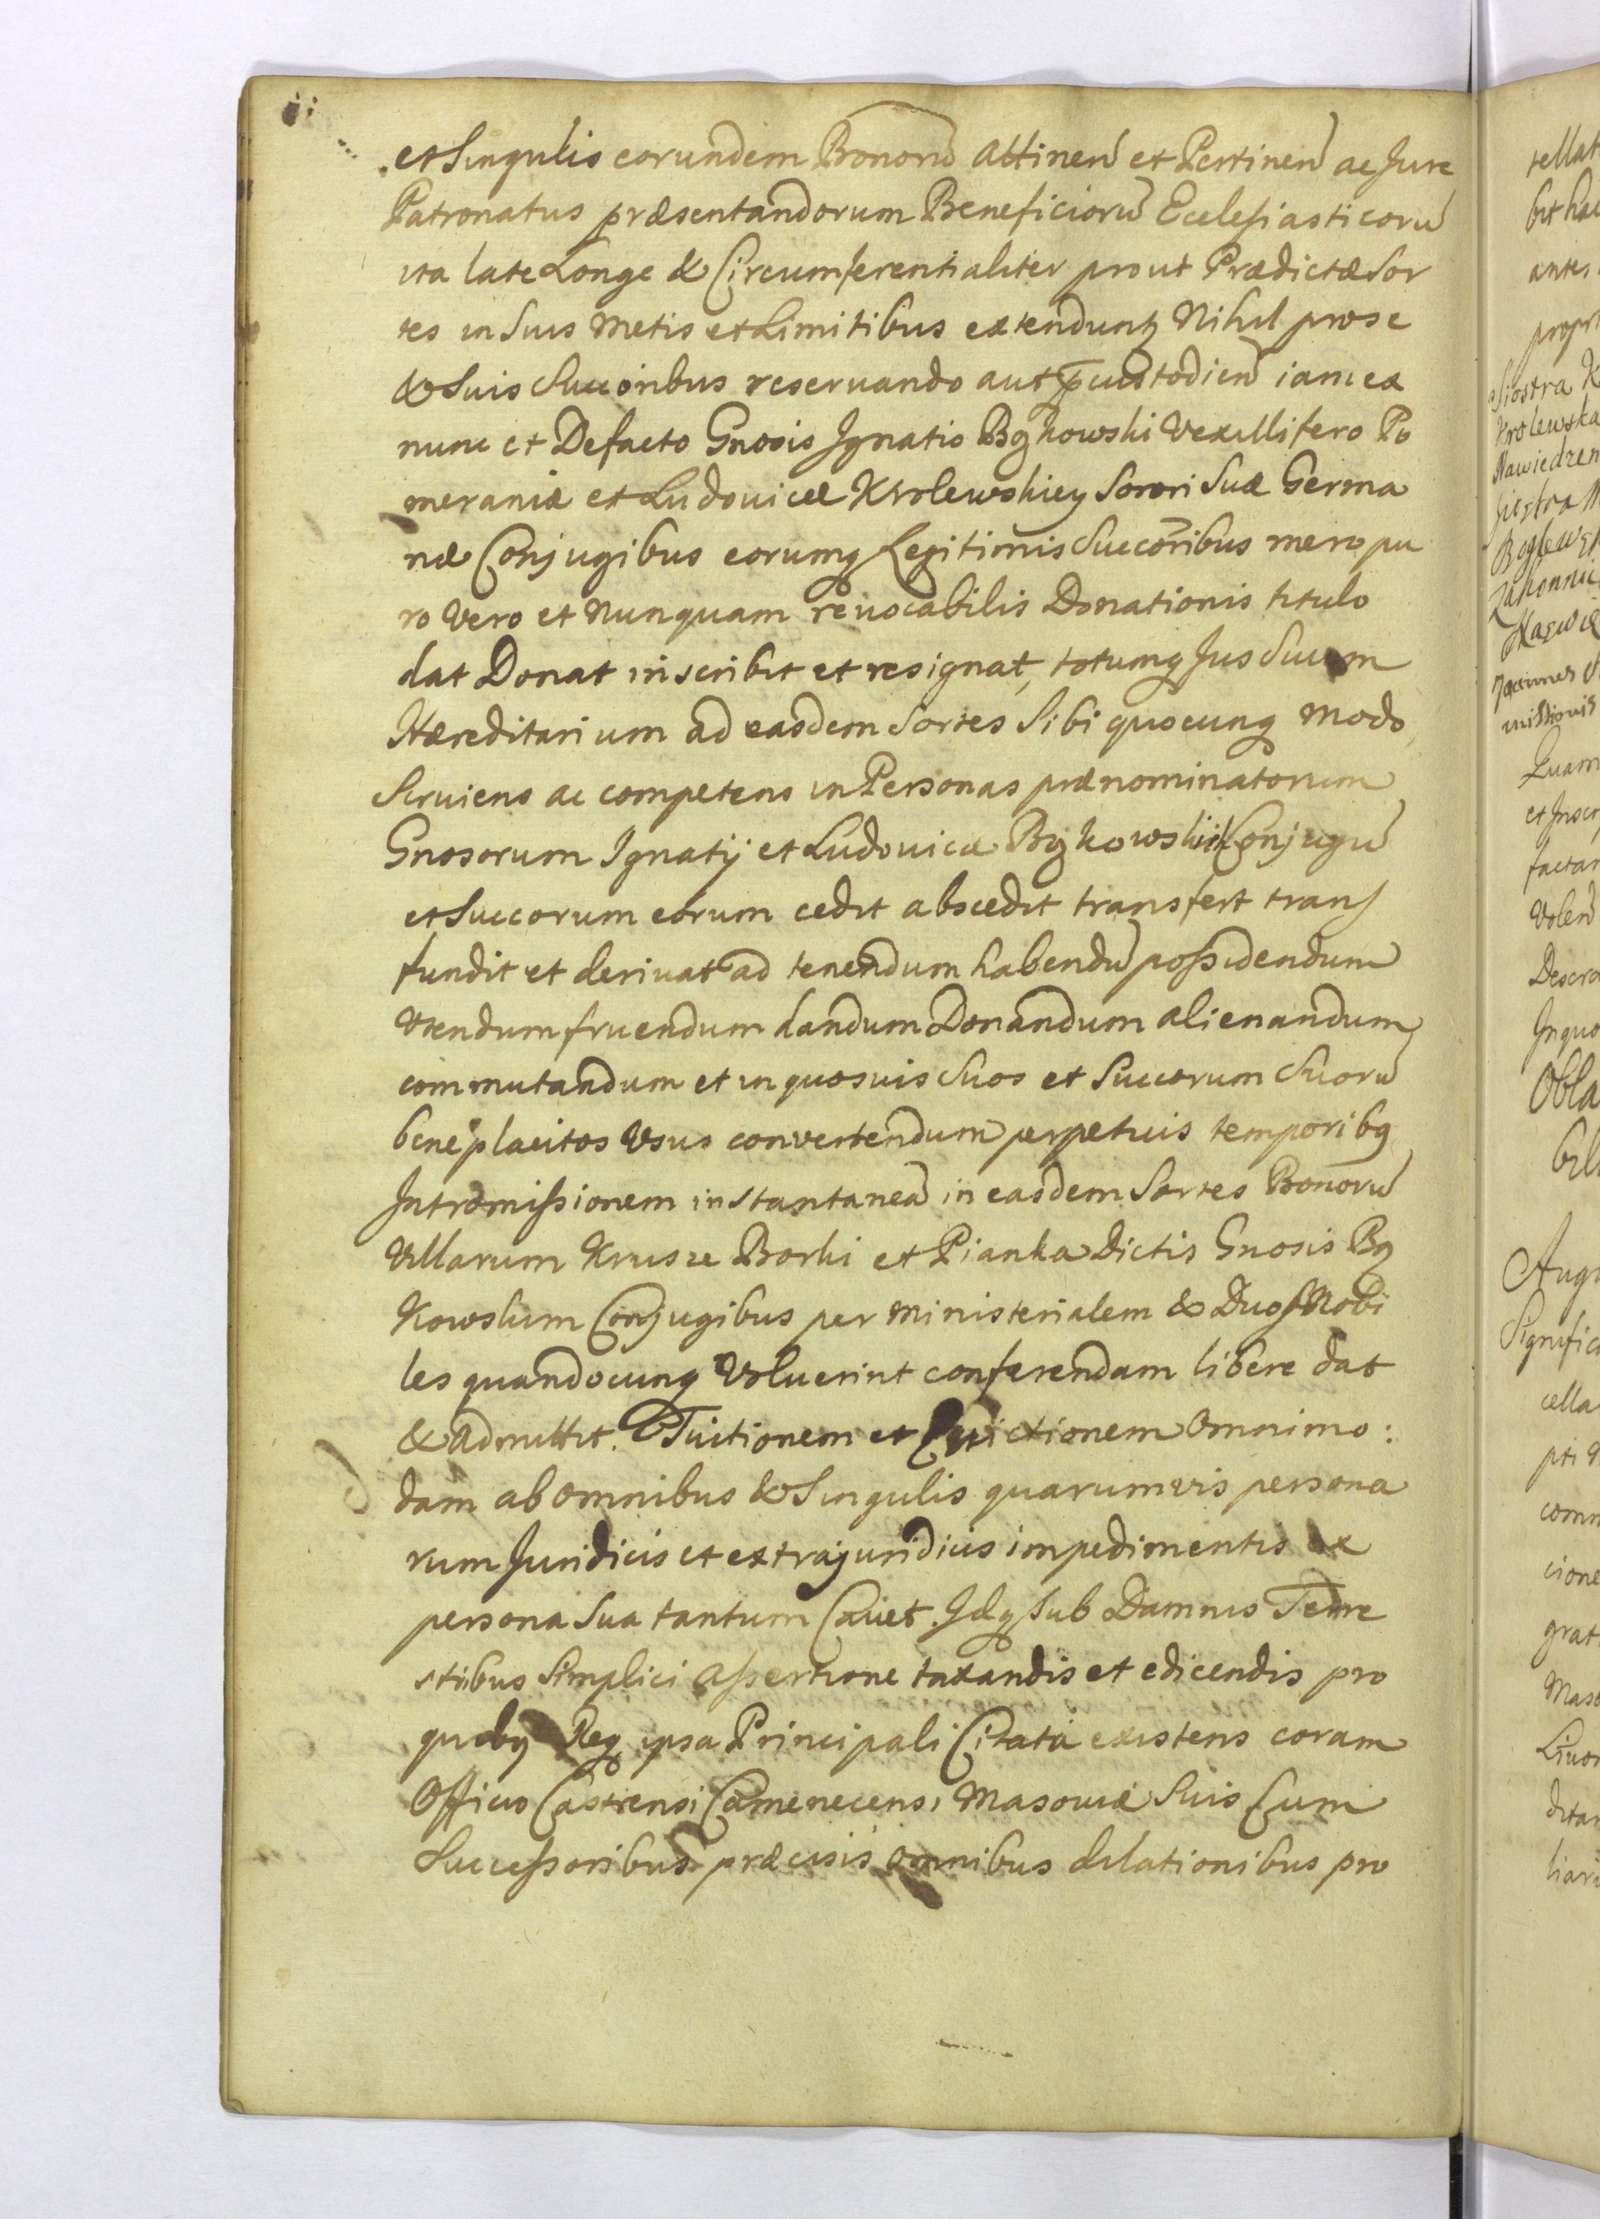 et Singulis eorundem Bonorũ attineñ et Pertineñ ac Jure
Patronatus præsentandorum Beneficiorũ Ecclesiasticorũ
ita late Longe & Circumferentialiter prout Prædictæ Sor
tes in Suis Metis et Limitibus extendunt Nihil pro se
& Suis Succoribus reservando aut custodieñ iam ex
nunc et Defacto Gnosis Ignatio Bykowski Vexillifero Po
meraniæ et Ludovicæ Krolewskiey Sorori Suæ Germa
næ Conjugibus eorumq Legitimis Succoribus mero pu
ro Vero et Nunquam revocabilis Donationis titulo
dat Donat inscribit et resignat, totumq Jus Suum
Hæreditarium ad easdem Sortes Sibi quocunq modo
Serviens ac competens in Personas prænominatorum
Gnosorum Ignatij et Ludovicæ Bykowskich Conjugũ
et Succorum eorum cedit abscedit transfert trans
fundit et derivat ad tenendum habendũ possidendum
Utendum fruendum dandum Donandum alienandum
commutandum et in quosvis Suos et Succorum Suorũ
beneplacitos Usus convertendum perpetuis temporibq
Intromissionem instantaneã in easdem Sortes Bonorũ
Villarum Krusze Borki et Pianka Dictis Gnosis By
kowskim Conjugibus per Ministerialem & Duos Nobi
les quandocunq Voluerint conferendam libere dat
& admittit. Tuitionem et Evictionem Omnimo:
dam ab omnibus & Singulis quarumvis persona
rum Juridicis et extrajuridicis impedimentis ex
persona Sua tantum Cavet. Idq sub Damnis Terre
stribus Simplici assertione taxandis et edicendis pro
quibq Reg ipsa Principali Citata existens coram
Officio Castrensi Camenecensi Masoviæ Suis Cum
Successoribus præcisis omnibus dilationibus pro